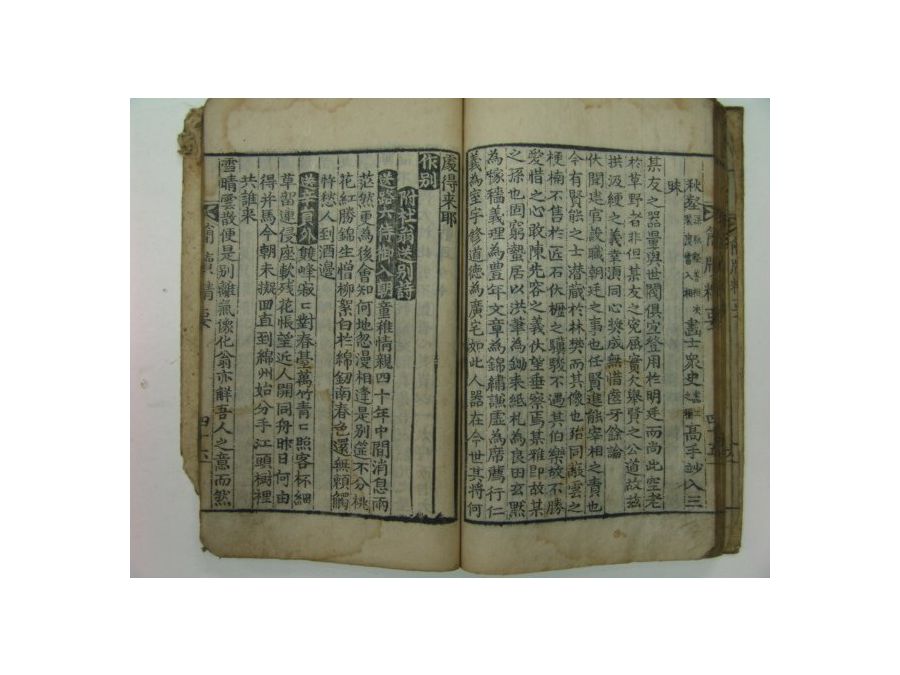 畫士衆史 高手妙入三
昧
某友之器量與世闊俱宜登用於明廷而尚此空老
於草野者非但某友之究屈實欠舉賢之公道故玆
拱汲綆之義幸須同心奬成無惜齒牙餘論
伏聞建官設職朝廷之事也任賢進能宰相之責也
今有賢能之士潜蔵於林樊而其像也殆同蔽雲之
梗楠不售於匠石伏櫪之驥不遇其伯樂故不勝
愛惜之心敢陳先容之義伏望垂察焉某雅即故某
之孫也固窮蟄居以洪筆為鋤耒紙札為良田玄默
為稼穡義理為豊年文章為錦繡謙虛為席薦行仁
義為室宇修道德為廣宅如此人器在今世其將何
處得来耶
作別
附杜翁送別詩
送路六侍御入朝 童稚情親四十年中間消息兩
茫然更為後會知何地忽漫相逢是別筵不分桃
花紅勝錦生憎柳絮白於綿釰南春色還無頼觸
忤愁人到酒邉
送辛貟外 雙峰寂〻對春臺萬竹青〻照客杯細
草留連侵座軟残花帳望近人開同舟昨日何由
得并馬今朝未擬回直到綿州始分手江頭樹裡
共誰来
雪晴雲散便是別離氣像化翁亦觧吾人之意而然
簡牘精要 四十六